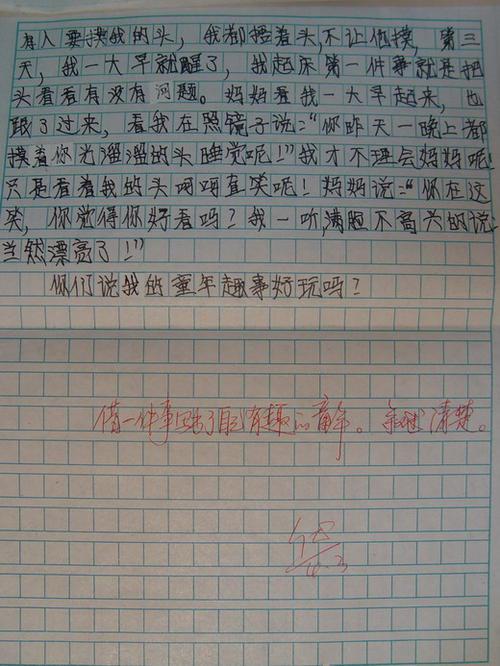 有人要摸我的头，我都捂着头，不让他摸，第三
天，我一大早就醒了，我起床第一件事就是把
头看看有没有问题。妈妈看我一大早起来，也
跟了过来，看我在照镜子说：“你昨天一晚上都
摸着你光溜溜的头睡觉呢！”我才不理会妈妈呢，
只是看着我的头呵呵直笑呢！妈妈说：“你在这
笑，你觉得你好看吗？我一听，满脸不高兴的说，
当然漂亮了！”
你们说我的童年趣事好玩吗？
借一件事回忆了自己有趣的童年。叙述清楚。
4.3